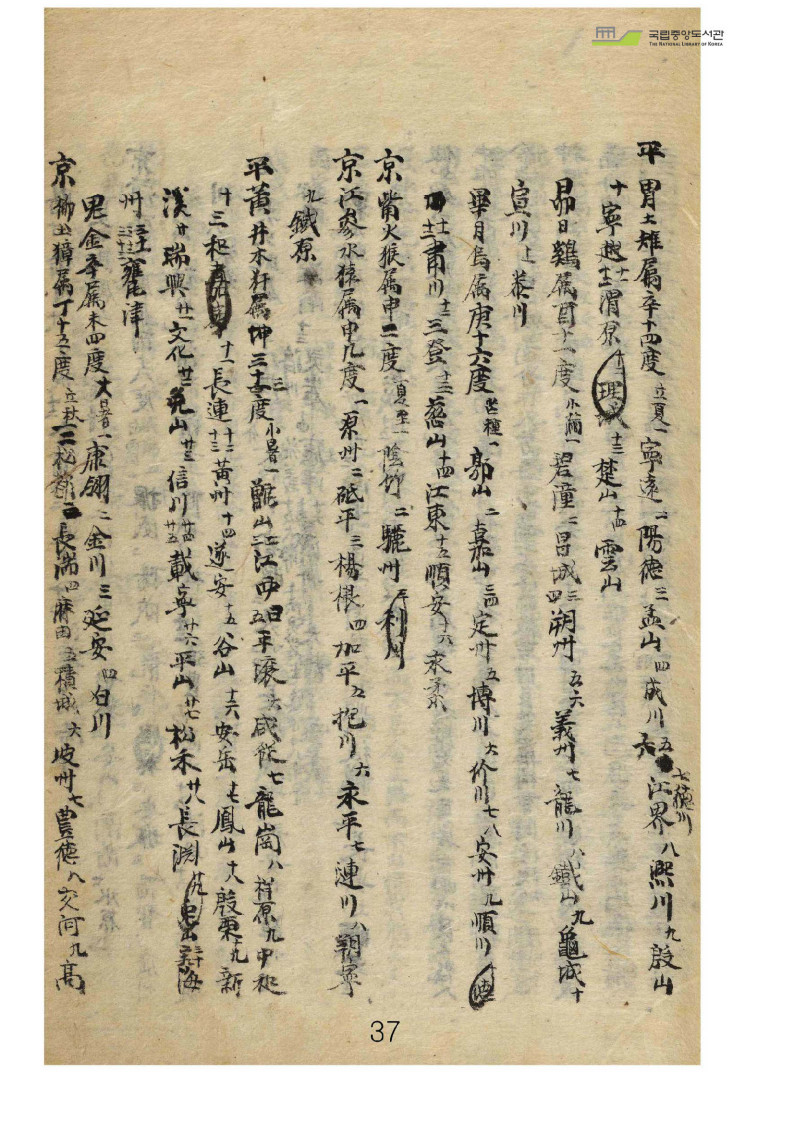 국립중앙도서관
THE NATIONAL LIBRARY OF KOREA
平胃土雉屬辛十四度 立夏一 寧遠二 陽德三 孟山四 成川五 六 七德川 江界八 熙川九 殷山
十 寧越十一 渭原十二 理 十三 楚山十四 雲山
昴日鷄屬酉十一度 小滿一 碧潼二 昌城三四 朔州五六 義州七 龍川八 鐵山九 龜城十
宣川十一 泰川
畢月烏屬庚十六度 芒種一 郭山二 嘉山三四 定州五 博川六 价川七八 安州九 順川十
十一 肅川十二 三登十三 慈山十四 江東十五 順安十六 永柔
京觜火猴屬申二度 夏至一 陰竹二 驪州三 利川
京江參水猿屬申九度 一 原州二 砥平三 楊根四 加平五 抱川六 永平七 漣川八 朔寧
九 鐵原
平黃井木犴屬坤三十三度 小暑一 甑山二三 江西四 五 平 六 咸從七 龍崗八 祥原九 中和
十 三和 十一 長連十二十三 黃州十四 遂安十五 谷山十六 安岳十七 鳳山十八 殷栗十九 新
溪廿 瑞興廿一 文化廿二 兎山廿三 信川廿四廿五 載寧廿六 平山廿七 松禾廿八 長淵廿九 三十 海
州 三十一 三十二三十三 甕津
鬼金羊屬未四度 大暑一 康翎二 金川三 延安四 白川
京柳土獐屬丁十五度 立秋一二 松都三 長湍四 麻田五 積城六 坡州七 豊德八 交河九 高
37